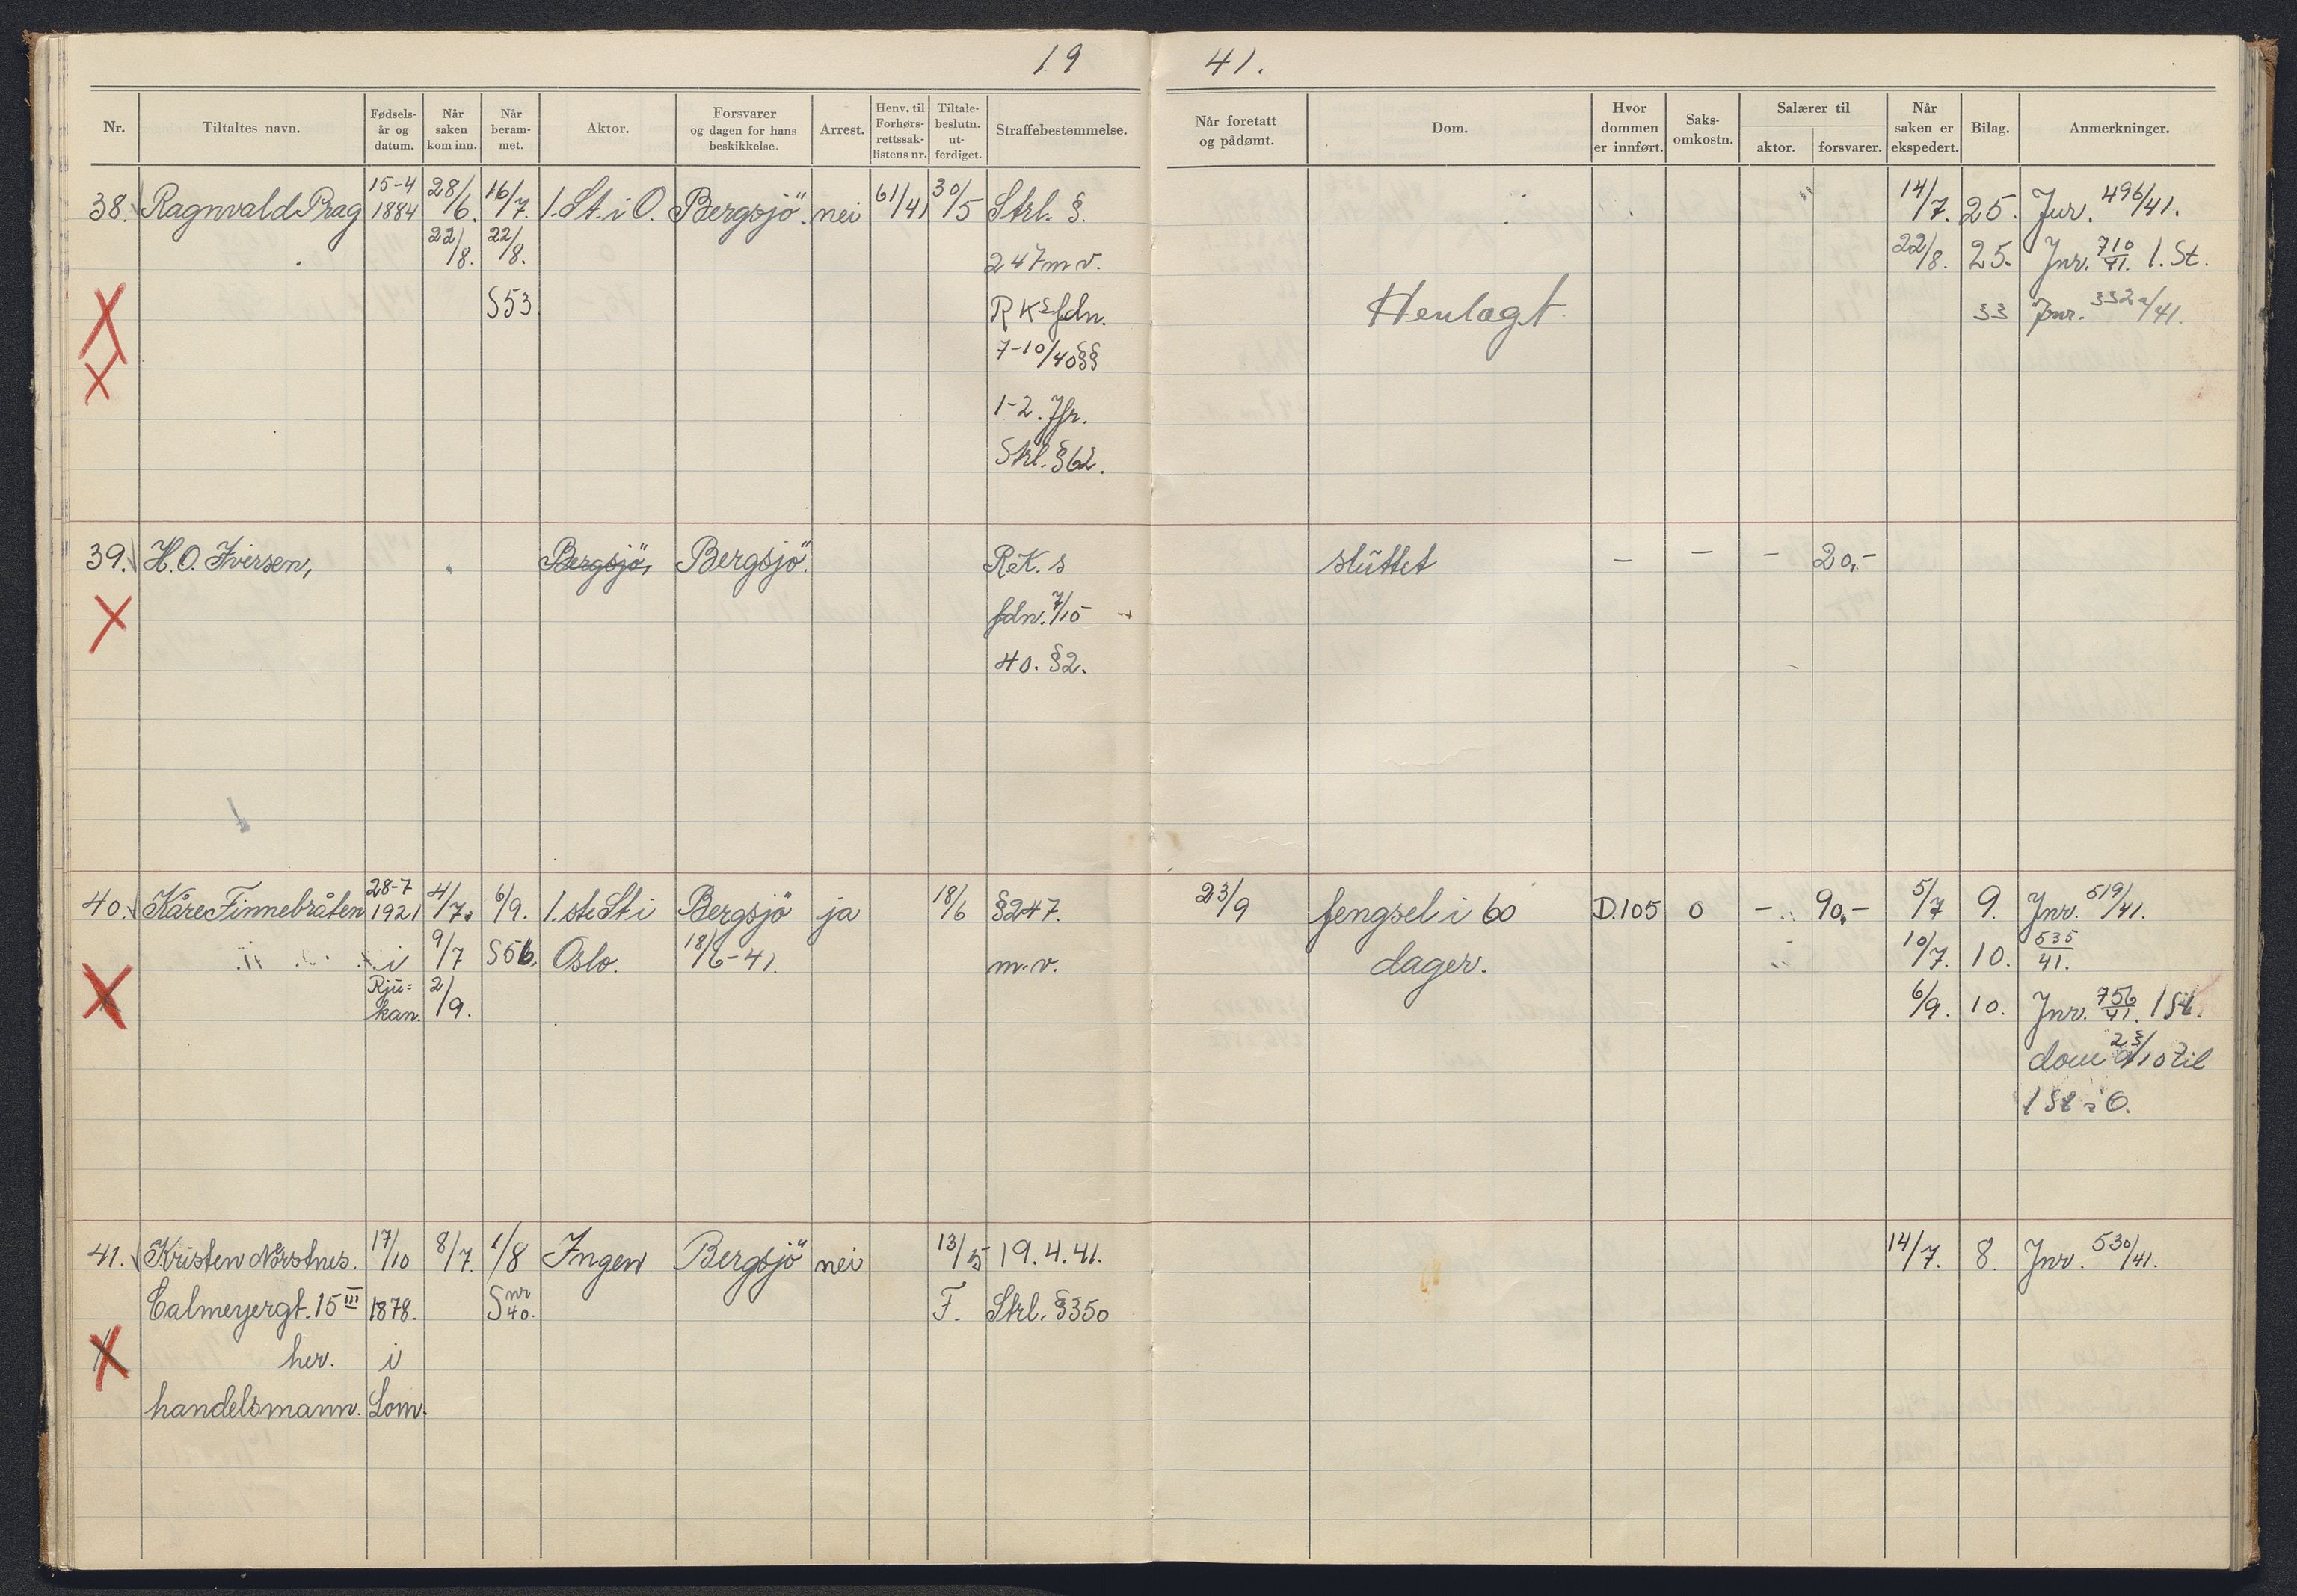 19 41.
Nr. Tiltaltes navn. Fødselsår og datum. Når saken kom inn. Når berammet. Aktor. Forsvarer og dagen for hans beskikkelse. Arrest. Henv. til Forhørsrettssaklistens nr. Tiltalebeslutn. utferdiget. Straffebestemmelse. Når foretatt og pådømt. Dom. Hvor dommen er innført. Saksomkostn. Salærer til aktor. forsvarer. Når saken er ekspedert. Bilag. Anmerkninger.
38. Ragnvald Prag 15-4 1884 28/6. 16/7. 1. St. i O. Bergsjö. nei 61/41 30/5 Strl. §. 14/7. 25. Jnr. 496/41.
22/8. 22/8. 247 m v. 22/8. 25. Jnr. 710/41. 1. St.
S53 R K s fdn. Henlagt. Jnr.
7-10/40 §§
1-2. Jfr.
Strl. § 62.
39. H. O. Iversen, Bergsjö, Bergsjö. R.K. s sluttet — — — 20,-
fdn. 7/10 -
40. § 2.
40. Kåre Finnebråten 28-7 1921 4/7. 6/9. 1. ste St i Bergsjö ja 18/6 § 247. 23/9 fengsel i 60 D.105 0 - 90,- 5/7 9. Jnr. 519/41.
i 9/7 S56. Oslo. 18/6-41. m. v. dager. 10/7. 10. 535/41.
Rju= 2/9. 6/9. 10. Jnr. 756/41. 1 St.
kan. dom til
41. Kristen Nørstnes. 17/10 8/7. 1/8 Ingen Bergsjö nei 13/5 19.4.41. 14/7. 8. Jnr. 530/41.
Calmeyergt. 15 III 1878. S nr 40. F. Strl. § 350
her. i
handelsmann. Lom.